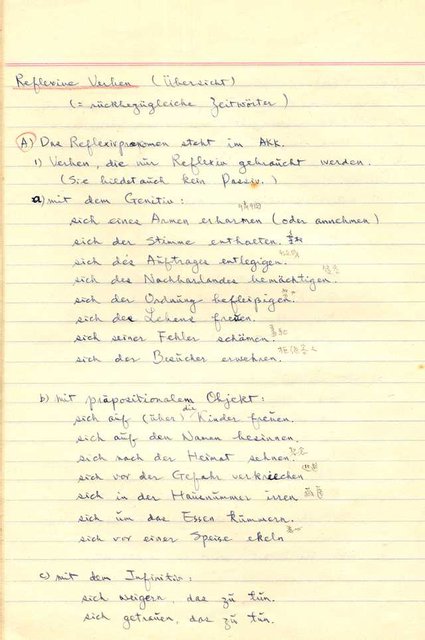 Reflexive Verben (Übersicht)
(= rückbezügleiche Zeitwörter)
A) Das Reflexivpronomen steht im AKK.
1) Verben, die nur Reflexiv gebraucht werden.
(Sie bildet auch kein Passiv.)
a) mit dem Genitiv:
sich eines Armen erbarmen (oder annehmen)
sich der Stimme enthalten.
sich des Auftrages entlegigen.
sich des Nachbarlandes bemächtigen.
sich der Ordnung befleißigen.
sich des Lebens freuen.
sich seiner Fehler schämen.
sich der Besucher erwehren.
b) mit präpositionalem Objekt:
sich auf (über) die Kinder freuen.
sich auf den Namen besinnen.
sich nach der Heimat sehnen.
sich vor der Gefahr verkriechen
sich in der Hausnummer irren
sich um das Essen kümmern.
sich vor einer Speise ekeln
c) mit dem Infinitiv:
sich weigern, das zu tun.
sich getrauen, das zu tun.